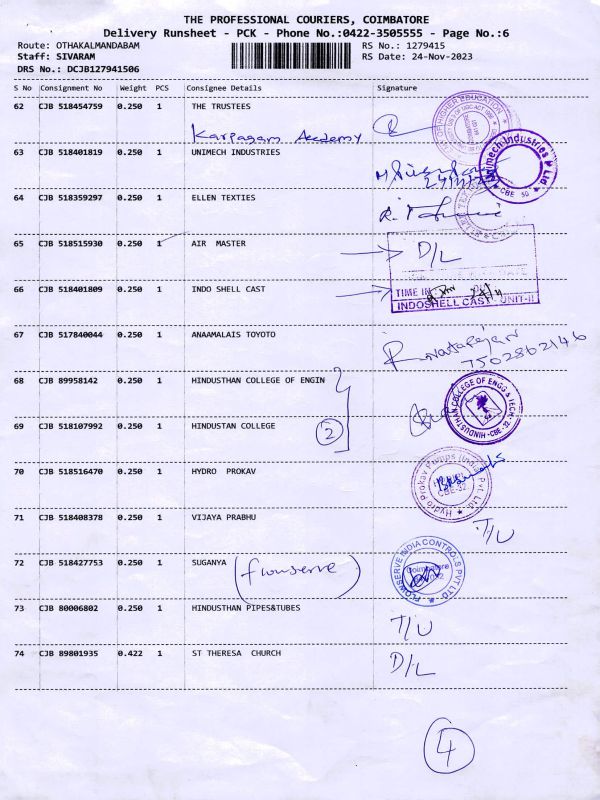 THE PROFESSIONAL COURIERS, COIMBATORE
Delivery Runsheet - PCK - Phone No.:0422-3505555 - Page No.:6
Route: OTHAKALMANDABAM RS No.: 1279415
Staff: SIVARAM RS Date: 24-Nov-2023
DRS No.: DCJB127941506
S No Consignment No Weight PCS Consignee Details Signature
62 CJB 518454759 0.250 1 THE TRUSTEES
Karpagam Academy
63 CJB 518401819 0.250 1 UNIMECH INDUSTRIES
Unimech Industries P Ltd
CBE 50
64 CJB 518359297 0.250 1 ELLEN TEXTIES
65 CJB 518515930 0.250 1 AIR MASTER D/L
66 CJB 518401809 0.250 1 INDO SHELL CAST TIME IN
INDOSHELL CAST UNIT-II
67 CJB 517840044 0.250 1 ANAAMALAIS TOYOTO Natarajan
7502862146
68 CJB 89958142 0.250 1 HINDUSTHAN COLLEGE OF ENGIN
HINDUSTHAN COLLEGE OF ENGG & TECH CBE-32
69 CJB 518107992 0.250 1 HINDUSTAN COLLEGE 2
70 CJB 518516470 0.250 1 HYDRO PROKAV
Hydro Prokav Pumps (India) Pvt. Ltd.
CBE-32
71 CJB 518408378 0.250 1 VIJAYA PRABHU T/U
72 CJB 518427753 0.250 1 SUGANYA (flowserve)
FLOWSERVE INDIA CONTROLS PVT LTD
Coimbatore
73 CJB 80006802 0.250 1 HINDUSTHAN PIPES&TUBES T/U
74 CJB 89801935 0.422 1 ST THERESA CHURCH D/L
4